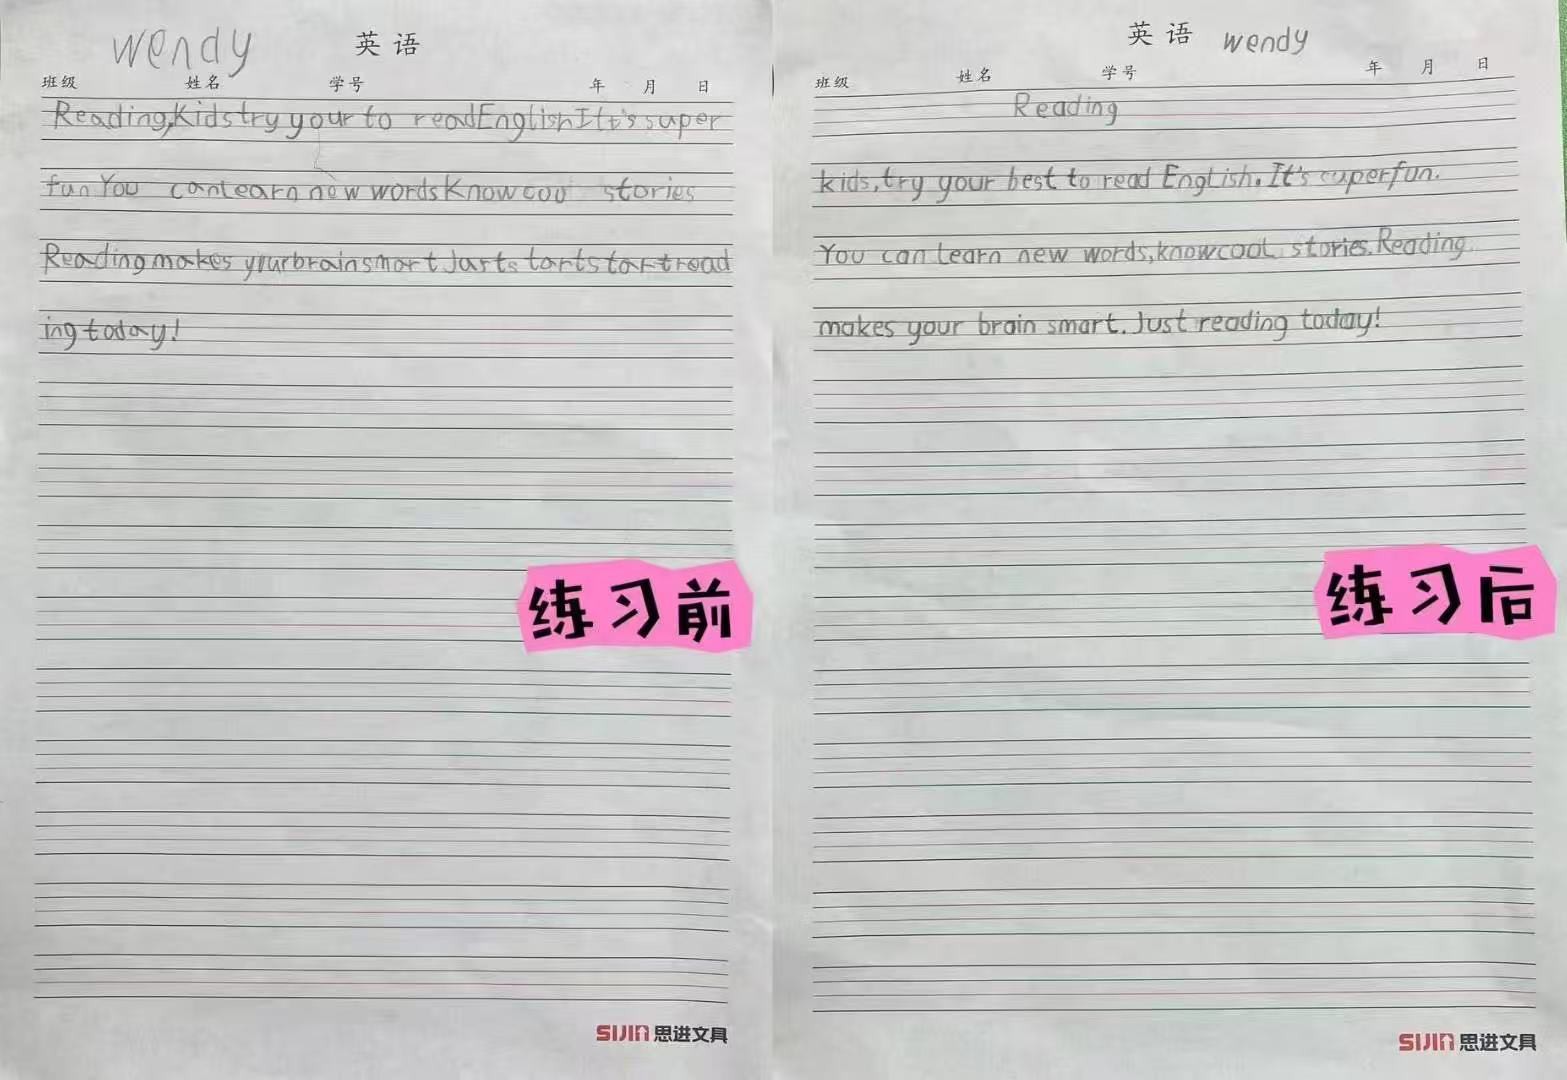 wendy
英语
班级 姓名 学号 年 月 日
Reading,Kidstry your to readEnglishIIt'ssuper
fun You canlearn new wordsKnowcool stories
Readingmakes yrurbrainsmart Jarts tartstartread
ingtoday!
练习前
SIJIN 思进文具
英语 wendy
班级 姓名 学号 年 月 日
Reading
kids,try your best to read English.It's superfun.
You can learn new words,knowcool stories.Reading
makes your brain smart.Just reading today!
练习后
SIJIN 思进文具